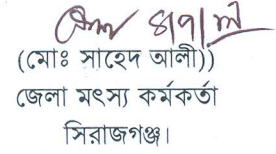 (মোঃ সাহেদ আলী))
জেলা মৎস্য কর্মকর্তা
সিরাজগঞ্জ।